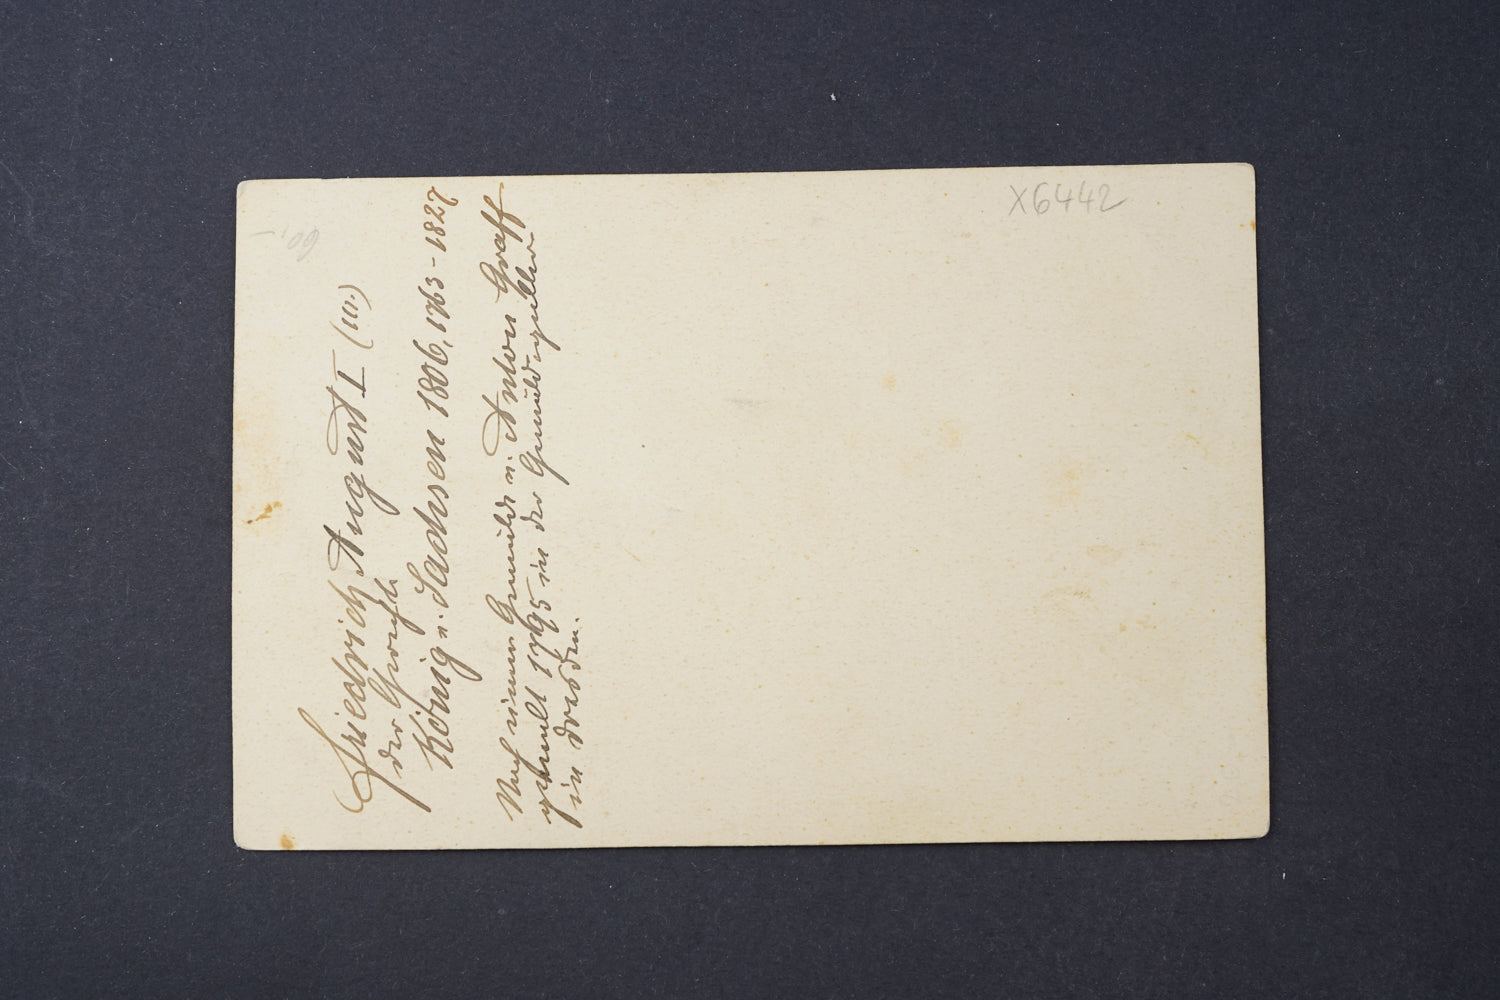 Friedrich August I (III.)
der Gerechte
König v. Sachsen 1806, 1763-1827
Nach einem Gemälde v. Anton Graff
gemalt 1795 in der Gemäldegallerie
in Dresden.
X6442